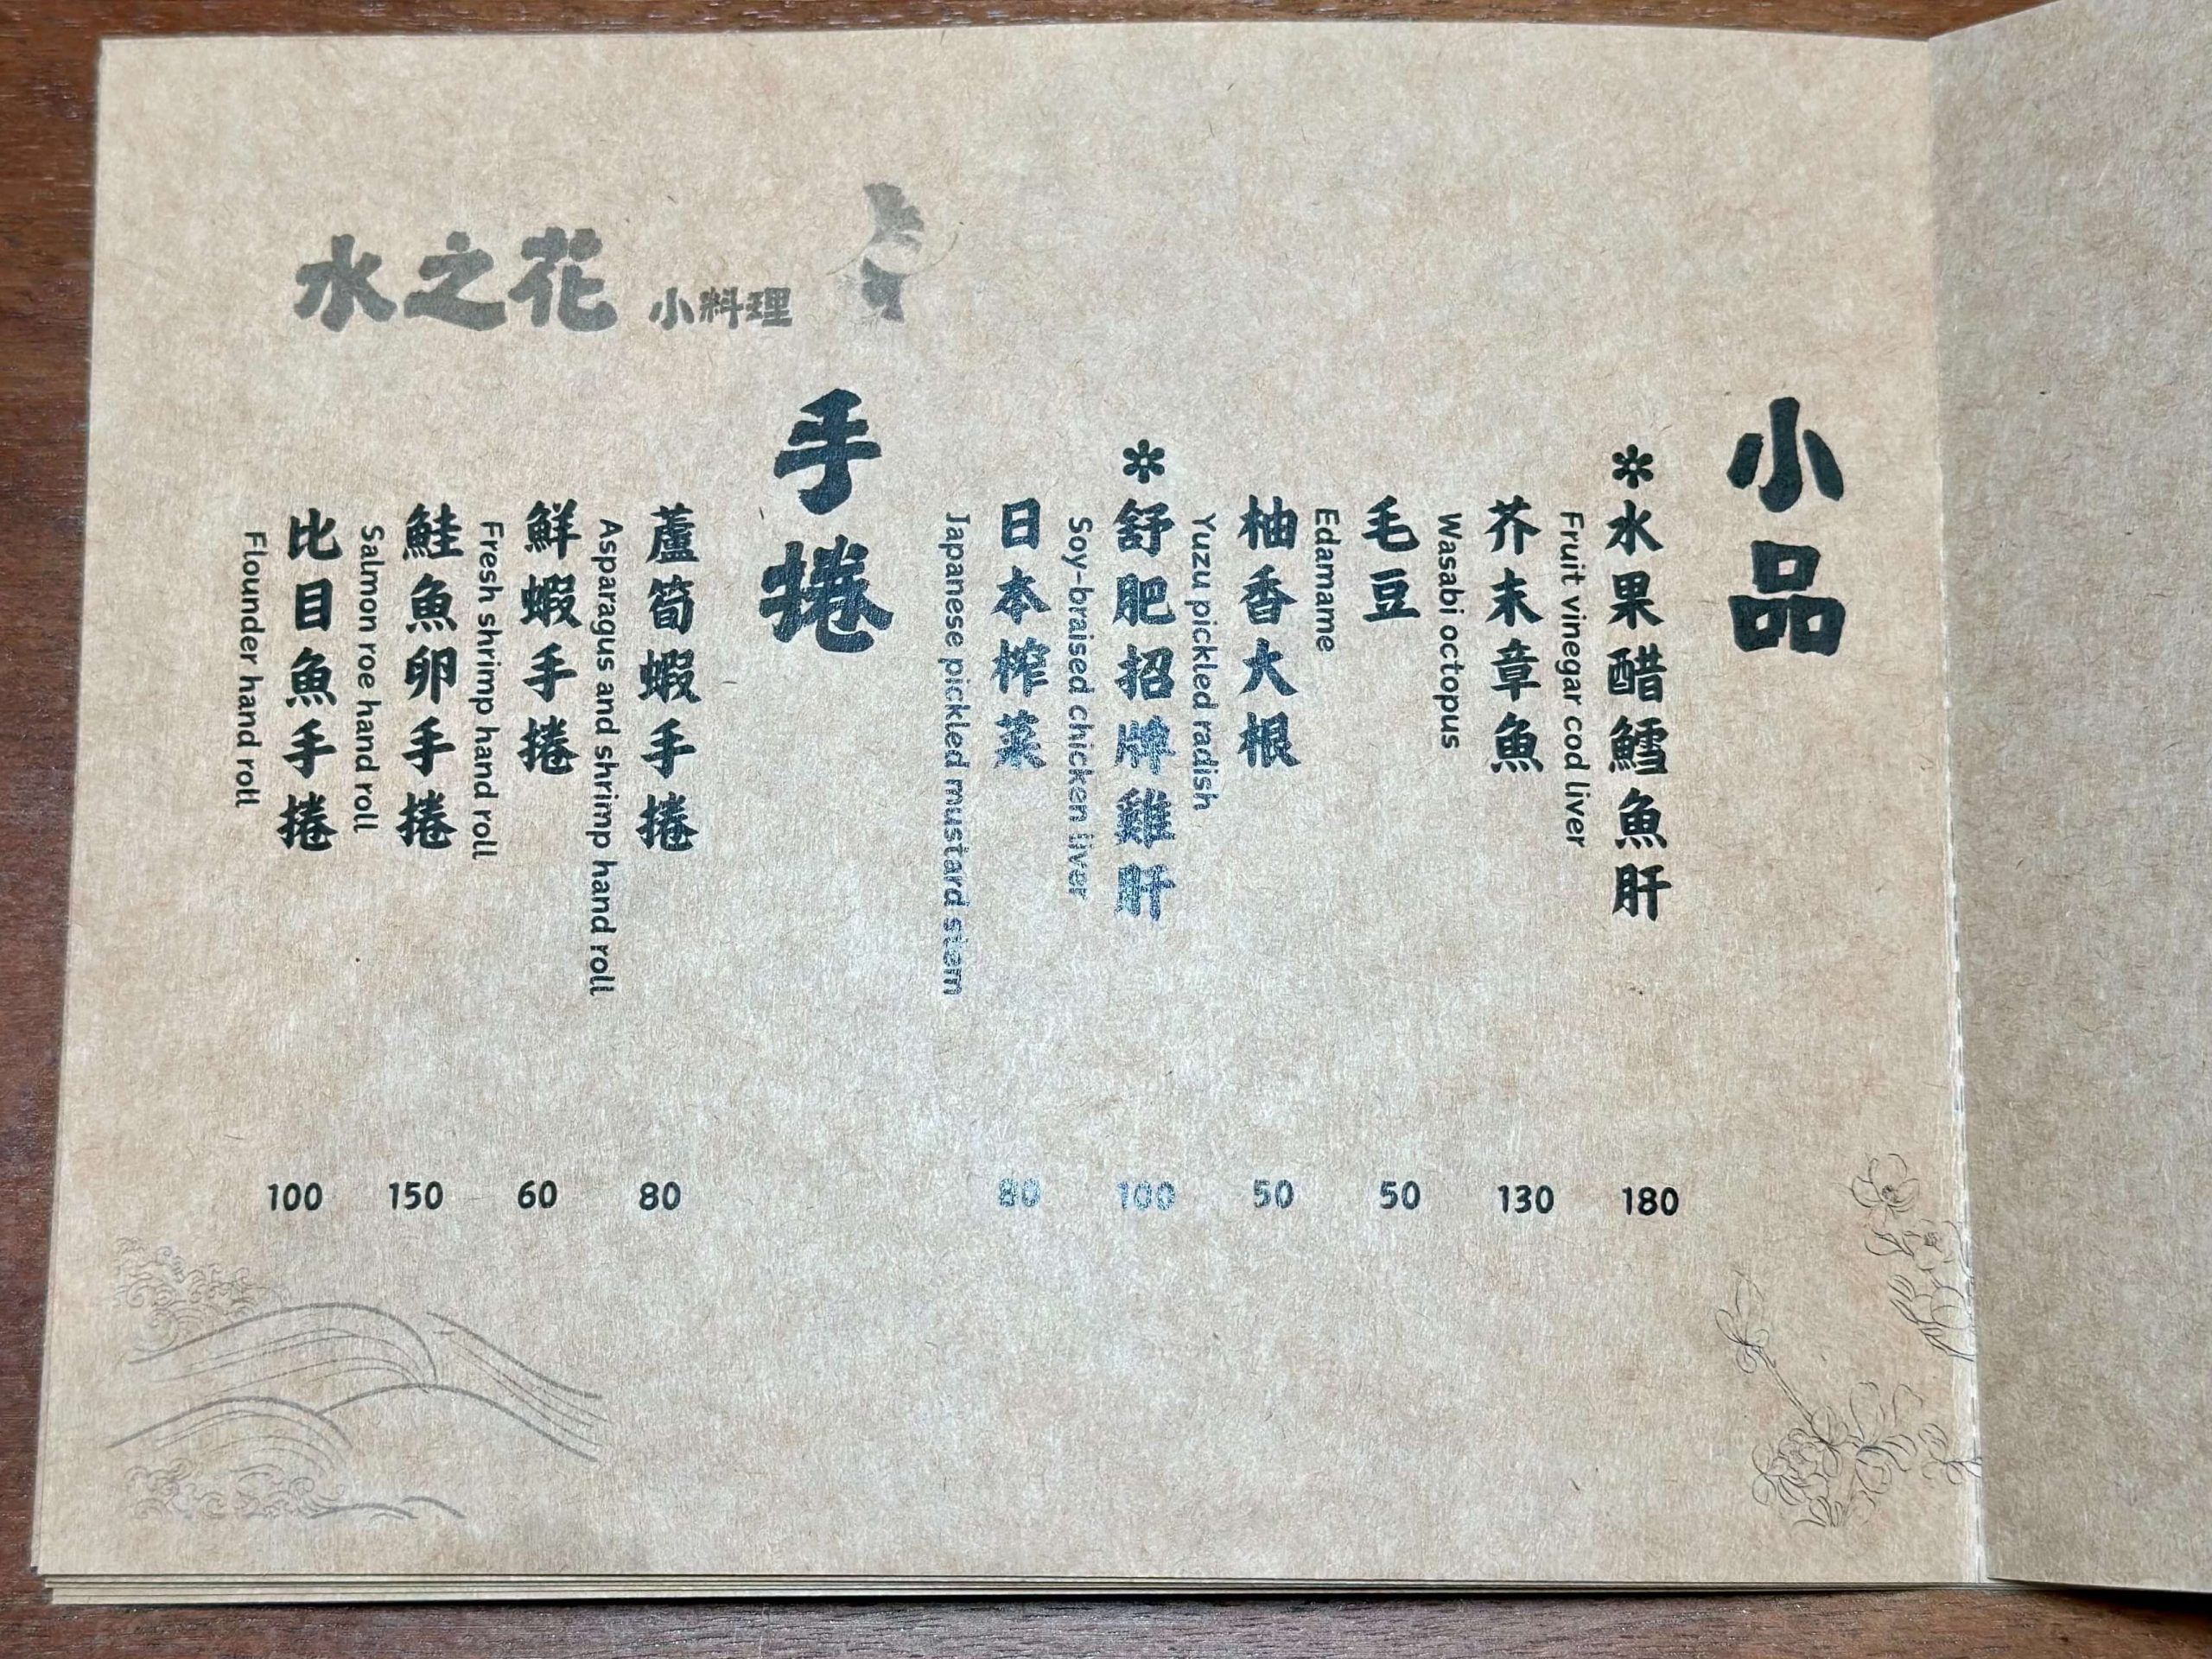 水之花 小料理
小品
✽水果醋鱈魚肝
Fruit vinegar cod liver
180
芥末章魚
Wasabi octopus
130
毛豆
Edamame
50
柚香大根
Yuzu pickled radish
50
✽舒肥招牌雞肝
Soy-braised chicken liver
100
日本榨菜
Japanese pickled mustard stem
80
手捲
蘆筍蝦手捲
Asparagus and shrimp hand roll
80
鮮蝦手捲
Fresh shrimp hand roll
60
鮭魚卵手捲
Salmon roe hand roll
150
比目魚手捲
Flounder hand roll
100